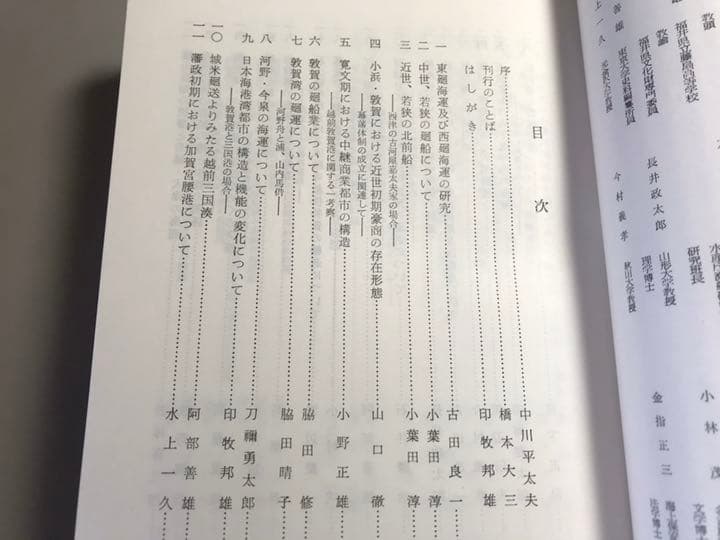 小林茂
研究班長
文学博士
教諭
福井県立藤島高等学校
福井県文化財専門委員
長井政太郎
山形大学教授
理学博士
金指正三
善雄
東京大学史料編纂所員
今村義孝
秋田大学教授
上一久
目次
序……中川平太夫
刊行のことば……橋本大三
はしがき……印牧邦雄
一 東廻海運及び西廻海運の研究……古田良一
二 中世、若狭の廻船について……小葉田淳
三 近世、若狭の北前船……小葉田淳
――西津の古河屋嘉太夫家の場合――
四 小浜・敦賀における近世初期豪商の存在形態……山口徹
――幕藩体制の成立に関連して――
五 寛文期における中継商業都市の構造……小野正雄
――越前敦賀港に関する一考察――
六 敦賀の廻船業について……脇田修
七 敦賀湾の廻運について……脇田晴子
八 河野・今泉の海運について……刀禰勇太郎
――河野舟と浦、山内馬借――
九 日本海港湾都市の構造と機能の変化について……印牧邦雄
――敦賀港と三国港の場合――
一〇 城米廻送よりみたる越前三国湊……阿部善雄
一一 藩政初期における加賀宮腰港について……水上一久